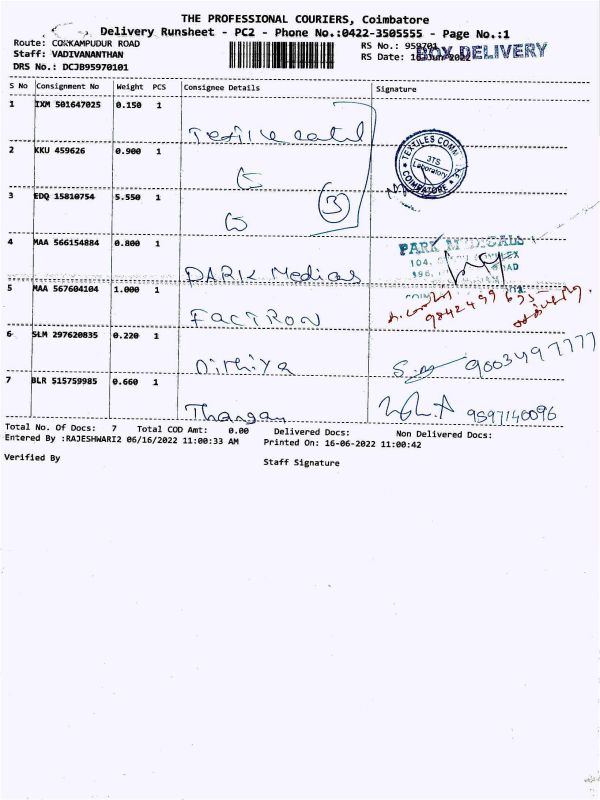 THE PROFESSIONAL COURIERS, Coimbatore
Delivery Runsheet - PC2 - Phone No.:0422-3505555 - Page No.:1
Route: COKKAMPUDUR ROAD
Staff: VADIVANANTHAN
DRS No.: DCJB95970101
RS No.: 959701
RS Date: 16 Jun 2022
BOX DELIVERY
S No Consignment No Weight PCS Consignee Details Signature
1 IXM 501647025 0.150 1
2 KKU 459626 0.900 1
TEXTILES COMM
3TS
Laboratory
COIMBATORE
3 EDQ 15810754 5.550 1 3
4 MAA 566154884 0.800 1 PARK Medicas
PARK MEDICALS
104,
5 MAA 567604104 1.000 1 FACTRON
9842499635
6 SLM 297620835 0.220 1 Nithiya 9003497777
7 BLR 515759985 0.660 1 Thangam 9597140096
Total No. Of Docs: 7 Total COD Amt: 0.00 Delivered Docs: Non Delivered Docs:
Entered By :RAJESHWARI2 06/16/2022 11:00:33 AM Printed On: 16-06-2022 11:00:42
Verified By Staff Signature